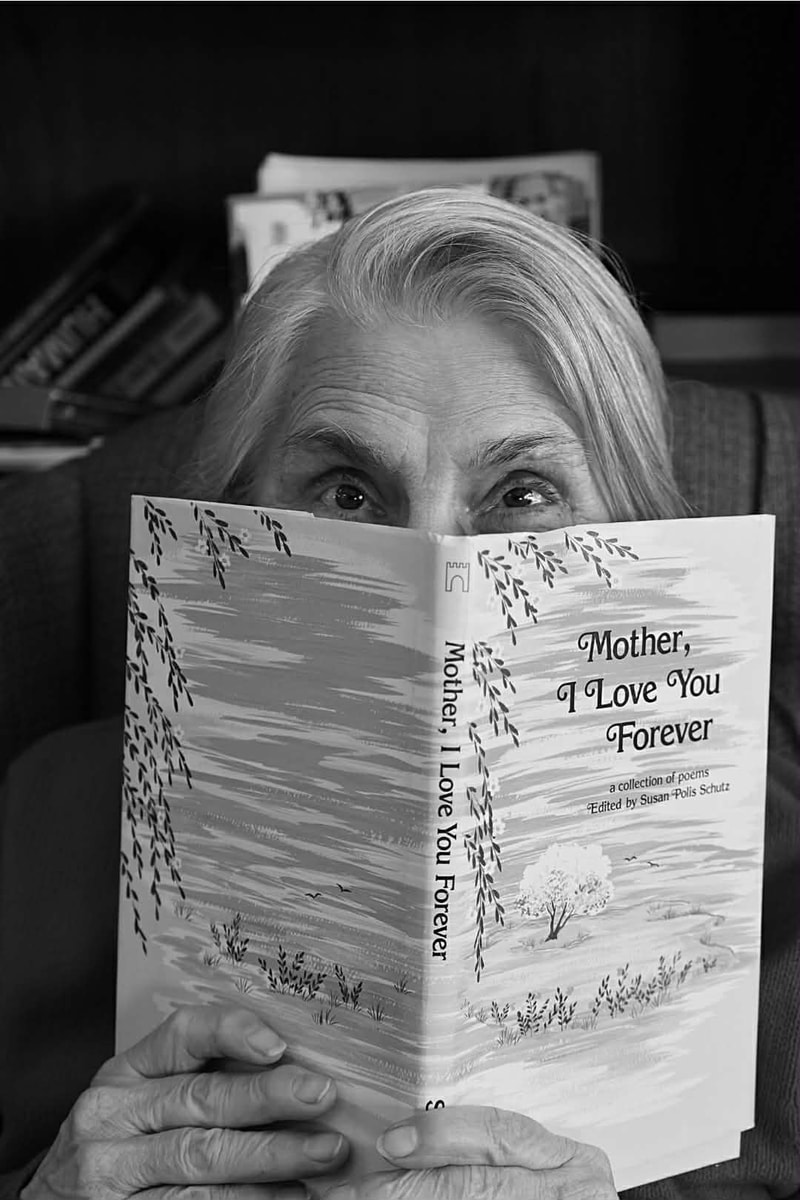 HUMAN
Mother, I Love You Forever
Mother,
I Love You
Forever
a collection of poems
Edited by Susan Polis Schutz